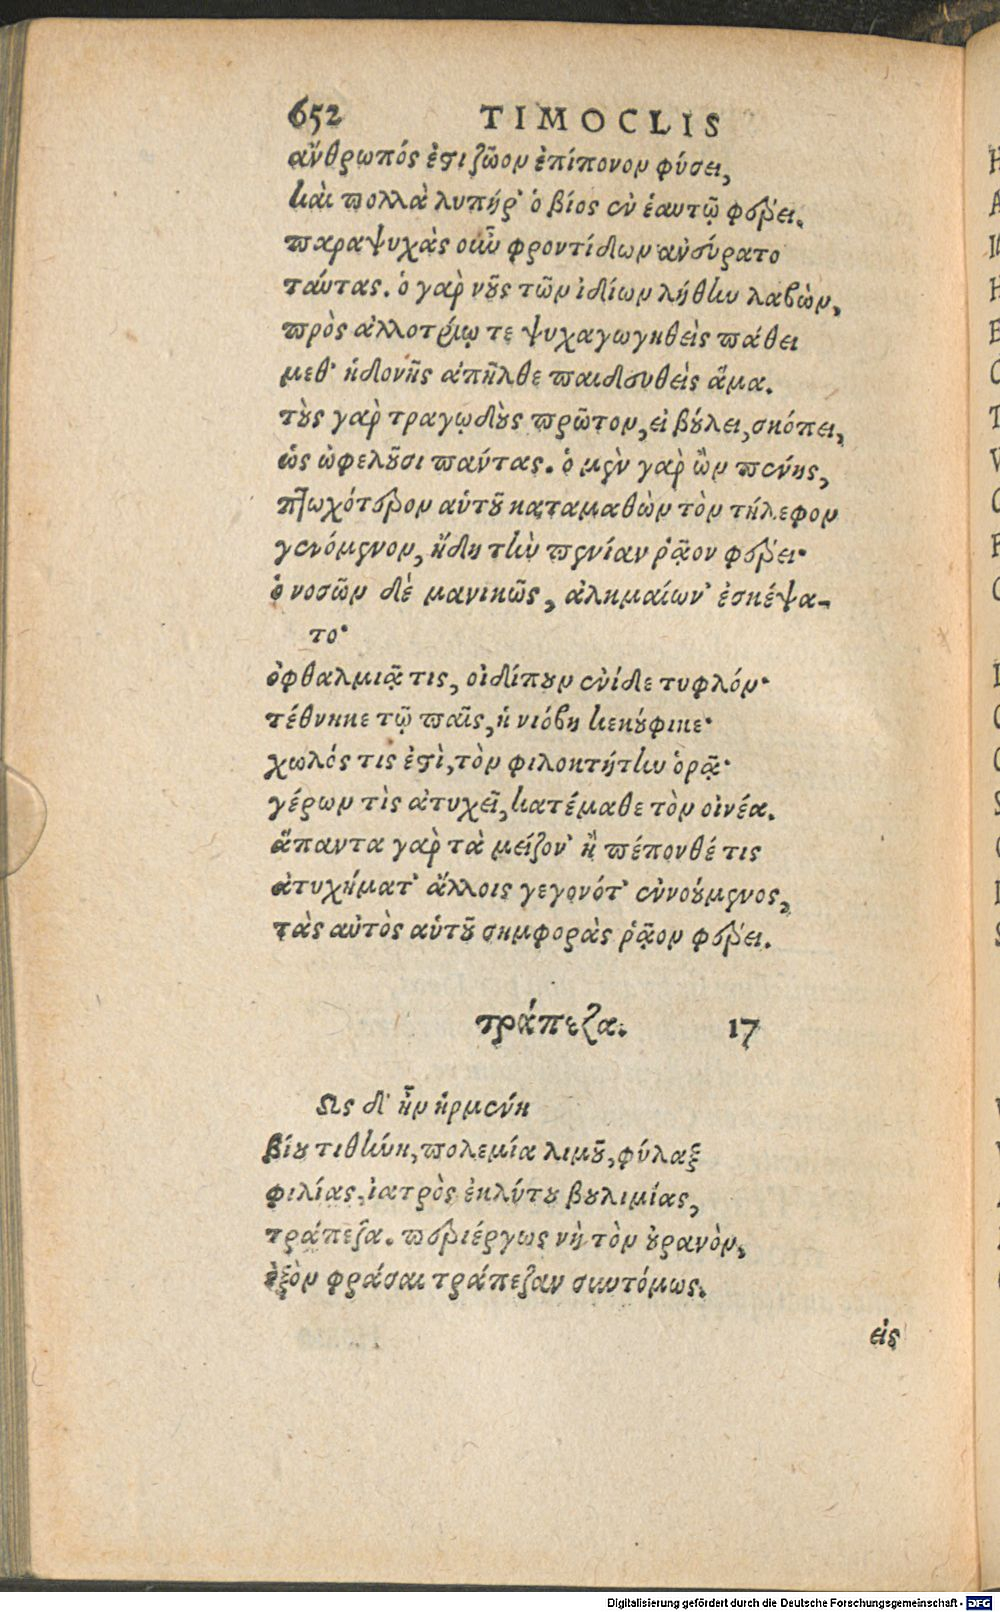 652 TIMOCLIS
ἄνθρωπός ἐστι ζῶον ἐπίπονον φύσει,
καὶ πολλὰ λυπήρ' ὁ βίος ἐν ἑαυτῷ φέρει.
παραψυχὰς οὖν φροντίδων ἀνεύρατο
ταύτας. ὁ γὰρ νοῦς τῶν ἰδίων λήθην λαβὼν,
πρὸς ἀλλοτρίῳ τε ψυχαγωγηθεὶς πάθει
μεθ' ἡδονῆς ἀπῆλθε παιδευθεὶς ἅμα.
τοὺς γὰρ τραγῳδοὺς πρῶτον, εἰ βούλει, σκόπει,
ὡς ὠφελοῦσι πάντας. ὁ μὲν γὰρ ὢν πένης,
πτωχότερον αὑτοῦ καταμαθὼν τὸν τήλεφον
γενόμενον, ἤδη τὴν πενίαν ῥᾷον φέρει·
ὁ νοσῶν δὲ μανικῶς, ἀλκμαίων' ἐσκέψα-
το·
ὀφθαλμιᾷ τις, οἰδίπουν ἐνίδε τυφλόν·
τέθνηκε τῷ παῖς, ἡ νιόβη κεκούφικε·
χωλός τις ἐστὶ, τὸν φιλοκτήτην ὁρᾷ·
γέρων τὶς ἀτυχεῖ, κατέμαθε τὸν οἰνέα.
ἅπαντα γὰρ τὰ μείζον' ἢ πέπονθέ τις
ἀτυχήματ' ἄλλοις γεγονότ' ἐννούμενος,
τὰς αὐτὸς αὑτοῦ σημφορὰς ῥᾷον φέρει.
τράπεζα. 17
Ως δ' ἦν ἡρμένη
βίου τιθήνη, πολεμία λιμοῦ, φύλαξ
φιλίας, ἰατρὸς ἐκλύτου βουλιμίας,
τράπεζα. περιέργως νὴ τὸν οὐρανὸν,
ἐξὸν φράσαι τράπεζαν συντόμως.
εἰς
Digitalisierung gefördert durch die Deutsche Forschungsgemeinschaft - DFG